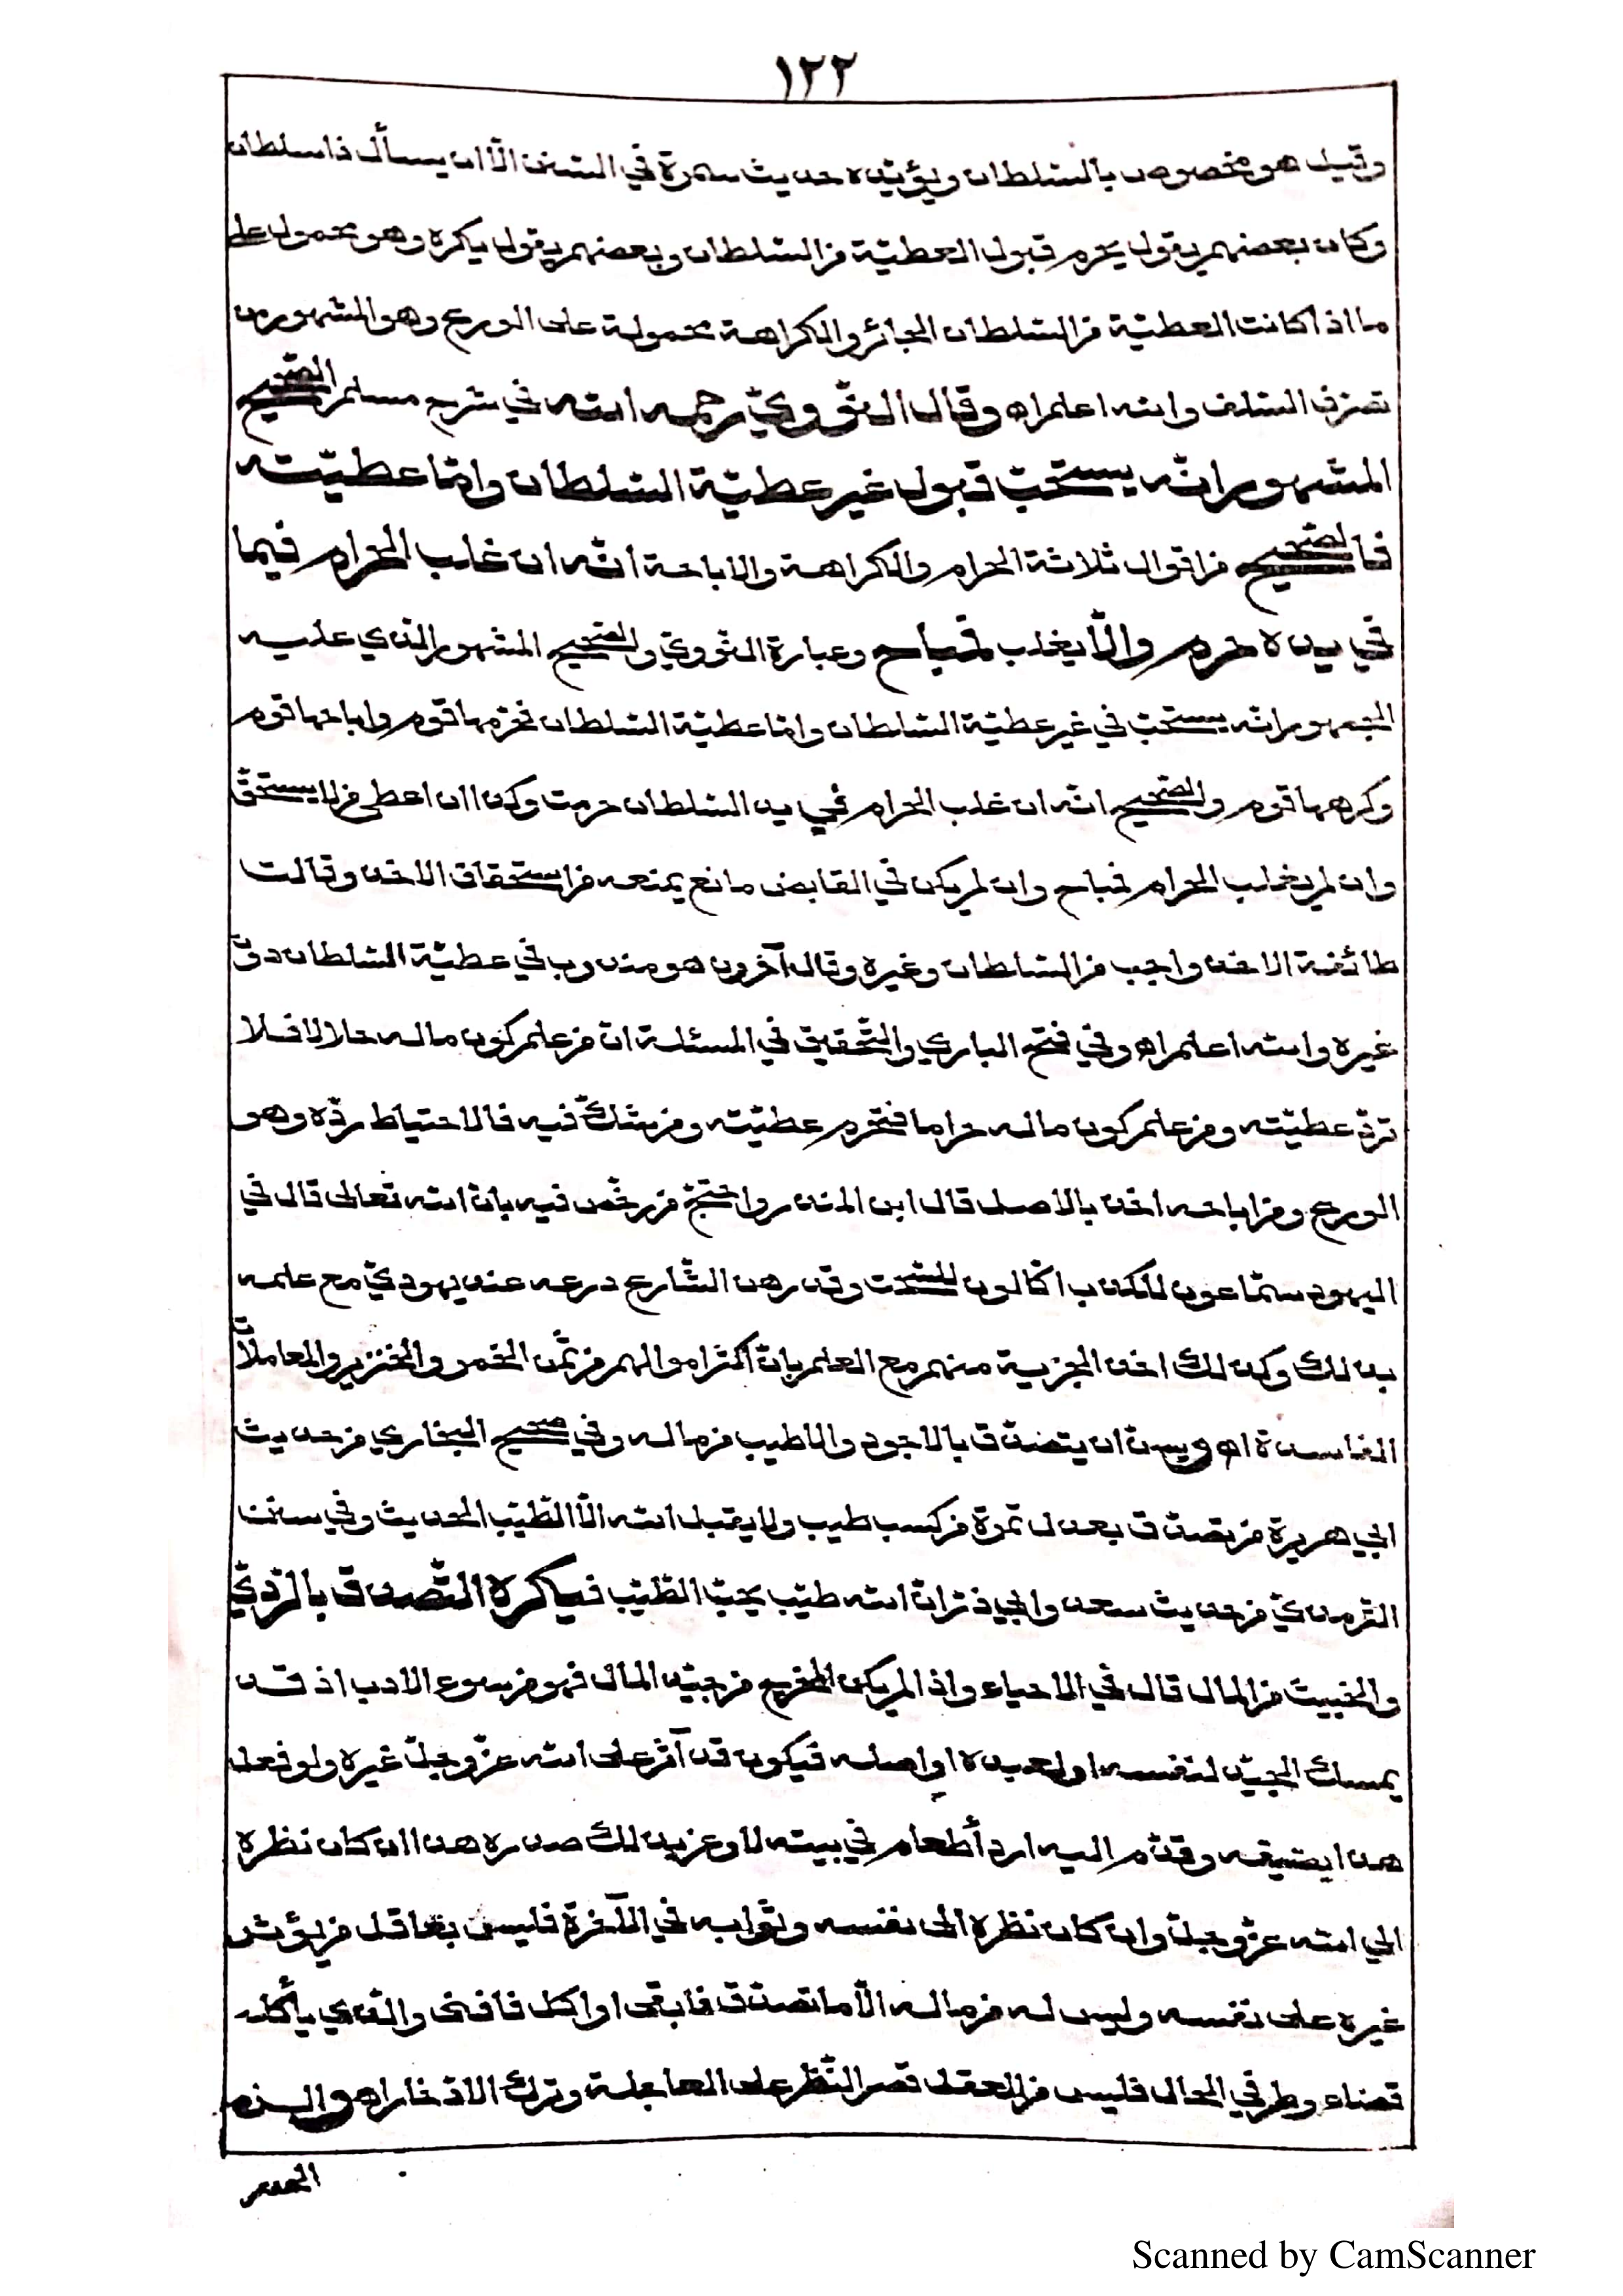 ١٢٢
وقيل هو مخصوص بالسّلطان ويؤيّده حديث سمرة في السّنن الّا ان يسأل ذا سلطان
وكان بعضهم يقول يحرم قبول العطيّة من السّلطان وبعضهم يقول يكره وهو محمول على
ما اذا كانت العطيّة من السّلطان الجائر والكراهة محمولة على الورع وهو المشهور من
تصرّف السّلف والله اعلم اه وقال النّوويّ رحمه الله في شرح مسلم الصّحيح
المشهور انّه يستحبّ قبول غير عطيّة السّلطان وامّا عطيّته
فالصّحيح من اقوال ثلاثة الحرام والكراهة والاباحة انّه ان غلب الحرام فيما
في يده حرم والّا يغلب فمباح وعبارة النّوويّ والصّحيح المشهور الذي عليه
الجمهور انّه يستحبّ في غير عطيّة السّلطان وامّا عطيّة السّلطان فحرّمها قوم واباحها قوم
وكرهها قوم والصّحيح انّه ان غلب الحرام في يد السّلطان حرمت وكذا ان اعطى من لا يستحقّ
وان لم يغلب الحرام فمباح وان لم يكن في القابض مانع يمنعه من استحقاق الاخذ وقالت
طائفة الاخذ واجب من السّلطان وغيره وقال آخرون هو مندوب في عطيّة السّلطان دون
غيره والله اعلم اه وفي فتح الباري والتّحقيق في المسئلة انّ من علم كون ماله حلالا فلا
تردّ عطيّته ومن علم كون ماله حراما فتحرم عطيّته ومن شكّ فيه فالاحتياط ردّه وهو
الورع ومن اباحه اخذ بالاصل قال ابن المنذر واحتجّ من رخّص فيه بانّ الله تعالى قال في
اليهود سمّاعون للكذب اكّالون للسّحت وقد رهن الشّارع درعه عند يهوديّ مع علمه
بذلك وكذلك اخذ الجزية منهم مع العلم بانّ اكثر اموالهم من ثمن الخمر والخنزير والمعاملات
الفاسدة اه ويسنّ ان يتصدّق بالاجود والاطيب من ماله وفي صحيح البخاري من حديث
ابي هريرة من تصدّق بعدل تمرة من كسب طيب ولا يقبل الله الّا الطّيّب الحديث وفي سنن
التّرمذيّ من حديث سعد وابي ذرّ انّ الله طيّب يحبّ الطّيّب فيكره التّصدق بالرّديّ
والخبيث من المال قال في الاحياء واذا لم يكن المخرج من جيّد المال فهو من سوء الادب اذ قد
يمسك الجيّد لنفسه او لعبده او اهله فيكون قد آثر على الله عزّ وجلّ غيره ولو فعل
هذا بضيفه وقدّم اليه اردأ طعام في بيته لاوغر بذلك صدره هذا ان كان نظره
الى الله عزّ وجلّ وان كان نظره الى نفسه وثوابه في الآخرة فليس بعاقل من يؤثر
غيره على نفسه وليس له من ماله الّا ما تصدّق فابقى او اكل فافنى والّذي يأكله
قضاء وطر في الحال فليس من العقل قصر النّظر على العاجلة وترك الادّخار اه
Scanned by CamScanner